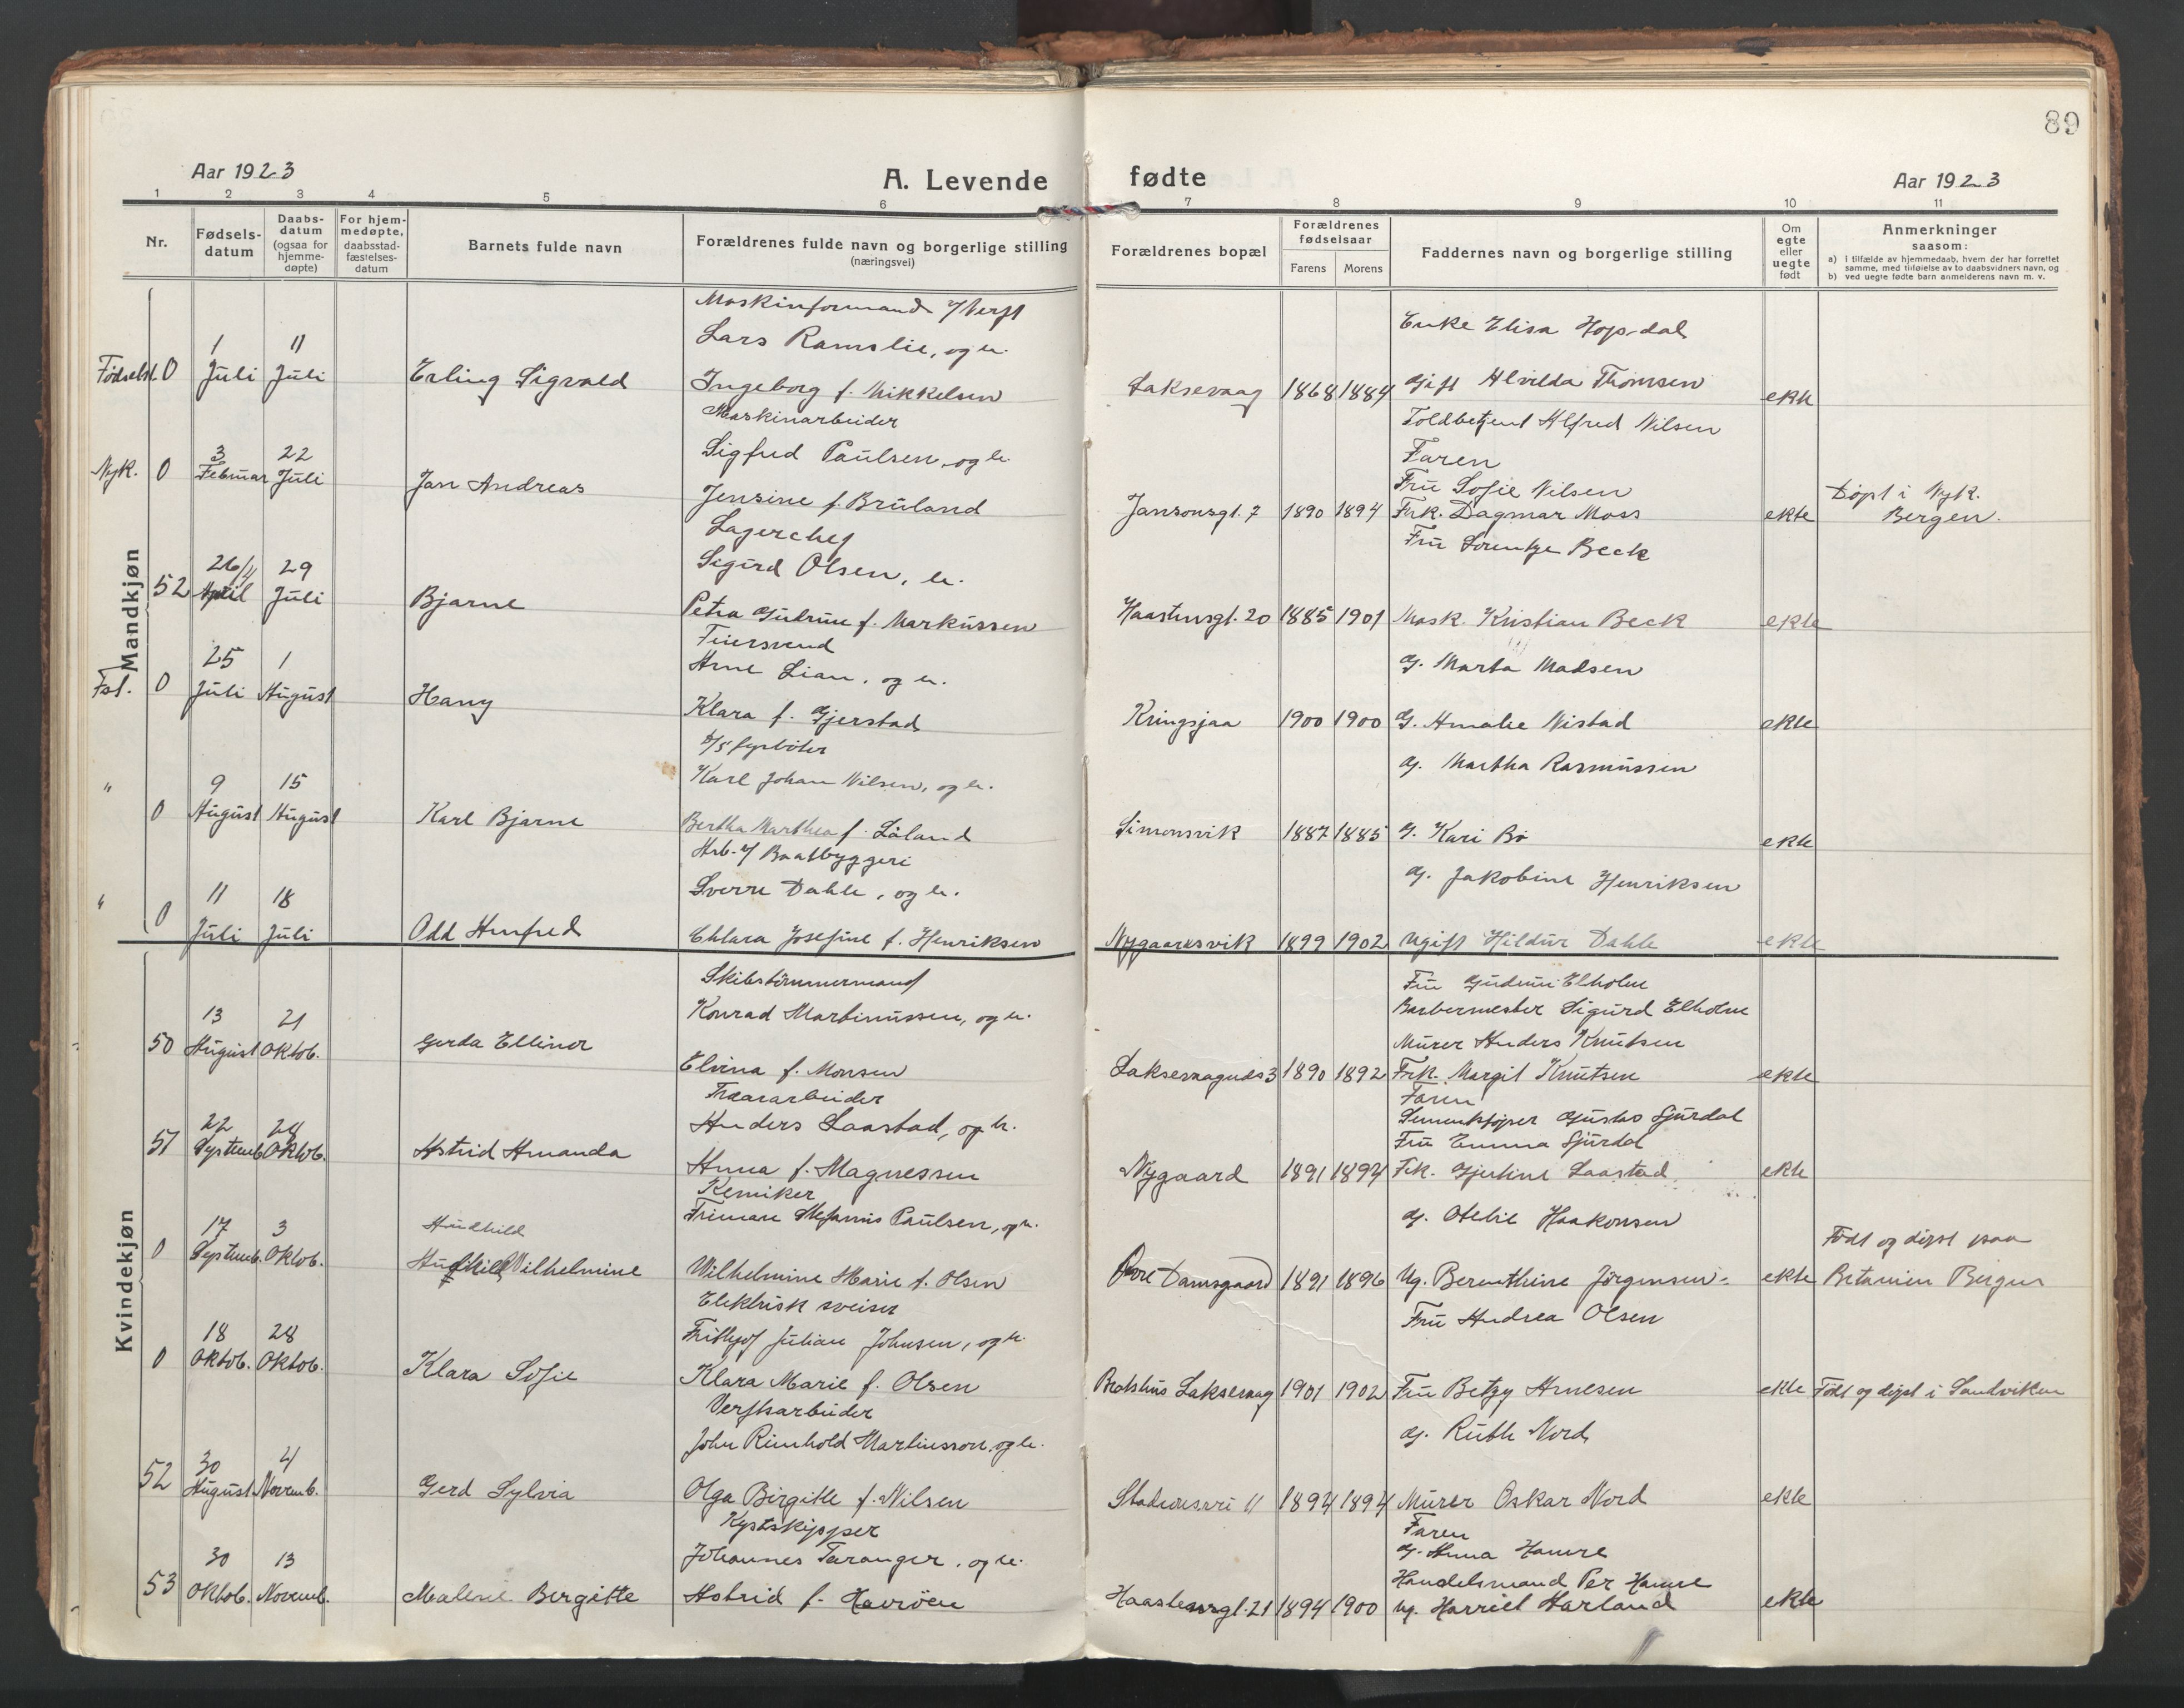 89
Aar 1923
A. Levende fødte
Aar 1923
1 2 3 4 5 6 7 8 9 10 11
Nr.
Fødsels-
datum
Daabs-
datum
(ogsaa for
hjemme-
døpte)
For hjem-
medøpte,
daabsstad-
fæstelses-
datum
Barnets fulde navn
Forældrenes fulde navn og borgerlige stilling
(næringsvei)
Forældrenes bopæl
Forældrenes
fødselsaar
Farens Morens
Faddernes navn og borgerlige stilling
Om
egte
eller
uegte
født
Anmerkninger
saasom:
a) i tilfælde av hjemmedaab, hvem der har forrettet
samme, med tilføielse av to daabsvidners navn, og
b) ved uegte fødte barn anmelderens navn m. v.
Mandkjøn
Maskinformand v/ Verft
Lars Ramslie, og h.
Ingeborg f. Mikkelsen
Fødselst. 0
1 Juli
11 Juli
Erling Sigvald
Laksevaag 1868 1884
Enke Elisa Hopsdal
Gift Alvilda Thomsen
ekte
Maskinarbeider
Sigfred Paulsen, og h.
Jensine f. Bruland
Nyk. 0
3 Februar
22 Juli
Jan Andreas
Jansonsgt. 7 1890 1894
Toldbetjent Alfred Nilsen
Faren
Fru Sofie Nilsen
Frk. Dagmar Moss
ekte
Døpt i Nyk.
Bergen.
Lagerchef
Sigurd Olsen, h.
Petra Gudrun f. Markussen
52
26/4 April
29 Juli
Bjarne
Haastensgt. 20 1885 1901
Fru Lorentze Beck
Mask. Kristian Beck
ekte
Feiersvend
Arne Lian, og h.
Klara f. Gjerstad
Fst. 0
25 Juli
1 August
Harry
Kringsjaa 1900 1900
G. Marta Madsen
G. Amalie Nistad
ekte
D/S fyrbøter
Karl Johan Nilsen, og h.
Bertha Marthea f. Låland
" 0
9 August
15 August
Karl Bjarne
Simonsvik 1887 1885
G. Martha Rasmussen
G. Kari Bø
ekte
Arb. v/ Baatbyggeri
Sverre Dahle, og h.
Chlara Josefine f. Henriksen
" 0
11 Juli
18 Juli
Odd Arnfred
Nygaardsvik 1899 1902
G. Jakobine Henriksen
Ugift Hildur Dahle
ekte
Kvindekjøn
Skibstømmermand
Konrad Martinussen, og h.
Elvina f. Monsen
50
13 August
21 Oktob.
Gerda Ellinor
1890 1892
Fru Gudrun Elholm
Barbermester Sigurd Elholm
Murer Anders Knutsen
Frk. Margit Knutsen
ekte
Træararbeider
Anders Laastad, og h.
Anna f. Magnessen
51
22 Septemb.
28 Oktob.
Astrid Amanda
Nygaard 1891 1894
Faren
Gustav Gjurdal
Fru Emma Gjurdal
Frk. Gjertine Laastad
ekte
Kemiker
Friman Stefanus Paulsen, og h.
Wilhelmine Marie f. Olsen
0
17 Septemb.
3 Oktob.
Audhild
Audhild Wilhelmine
Øvre Damsgaard 1891 1896
G. Otelie Haakonsen
Ug. Bernthine Jörgensen
ekte
Født og døpt paa
Betanien Bergen
Elektrisk sveiser
Frithjof Julian Johnsen, og h.
Klara Marie f. Olsen
0
18 Oktob.
28 Oktob.
Klara Sofie
Laksevaag 1901 1902
Fru Andrea Olsen
Fru Betzy Arnesen
ekte
Født og døpt i Sandviken
Verftsarbeider
John Reinhold Martinsson, og h.
Olga Birgitte f. Nilsen
52
30 August
4 Novemb.
Gerd Sylvia
11 1894 1894
G. Ruth Nord
Murer Oskar Nord
ekte
Kystskipper
Johannes Taranger, og h.
Astrid f. Havröen
53
30 Oktob.
13 Novemb.
Malene Bergitte
Haastensgt. 21 1894 1900
Faren
G. Anna Hamre
Handelsmand Per Hamre
Ug. Harriet Harland
ekte